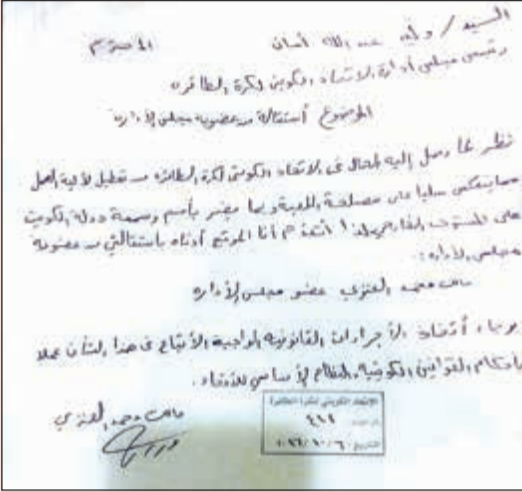 السيد / وليد عبد الله أمان المحترم
رئيس مجلس إدارة الاتحاد الكويتي لكرة الطائرة
الموضوع استقالة من عضوية مجلس الإدارة
نظر لما وصل إليه الحال في الاتحاد الكويتي لكرة الطائرة من تعطيل لآلية العمل
مما ينعكس سلبا على مصلحة اللعبة وبما يضر بأسم وسمعة دولة الكويت
على المستوى الخارجي لذا أتقدم أنا الموقع أدناه باستقالتي من عضوية
مجلس الإدارة.
العنزي عضو مجلس الإدارة
برجاء أتخاذ الإجراءات القانونية الواجبة الأتباع في هذا الشأن عملا
بأحكام القوانين الكويتية والنظام الأساسي للأتحاد.
العنزي
الإتحاد الكويتي لكرة الطائرة
التاريخ